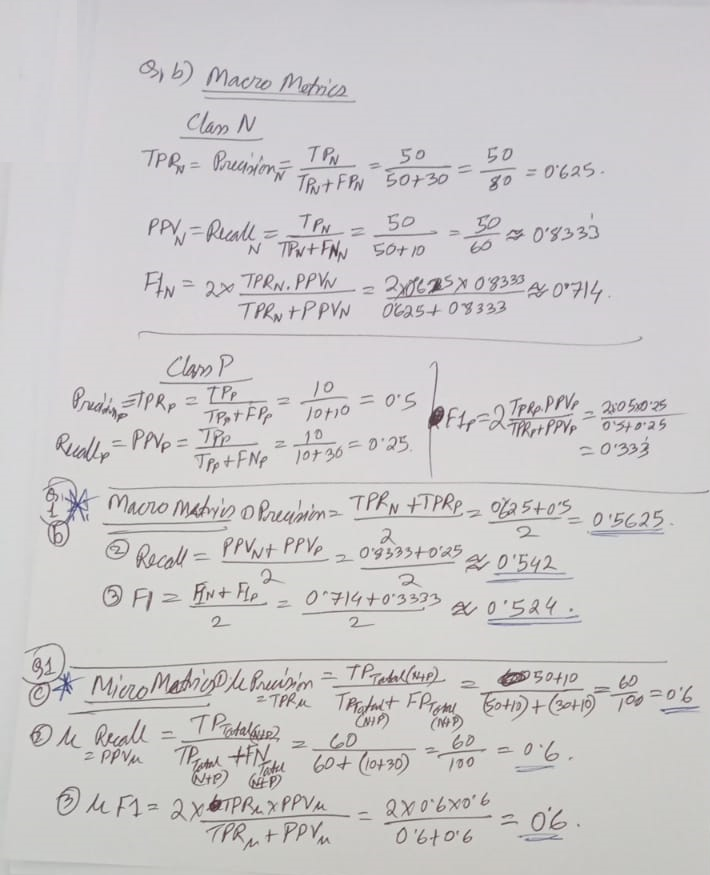 Q1 b) Macro Metrics
Class N
TPR_N = Precision_N = TP_N / (TP_N + FP_N) = 50 / (50+30) = 50/80 = 0.625.
PPV_N = Recall_N = TP_N / (TP_N + FN_N) = 50 / (50+10) = 50/60 ≈ 0.8333
F1_N = 2× (TPR_N . PPV_N) / (TPR_N + PPV_N) = (2×0.625×0.8333) / (0.625+0.8333) ≈ 0.714.
Class P
Precision_P = TPR_P = TP_P / (TP_P + FP_P) = 10 / (10+10) = 0.5
Recall_P = PPV_P = TP_P / (TP_P + FN_P) = 10 / (10+30) = 0.25.
F1_P = 2 (TPR_P . PPV_P) / (TPR_P + PPV_P) = (2×0.5×0.25) / (0.5+0.25)
= 0.333
Q1 b * Macro Metrics ① Precision = (TPR_N + TPR_P) / 2 = (0.625+0.5) / 2 = 0.5625.
② Recall = (PPV_N + PPV_P) / 2 = (0.8333+0.25) / 2 ≈ 0.542
③ F1 = (F1_N + F1_P) / 2 = (0.714+0.3333) / 2 ≈ 0.524.
Q1 c * Micro Metrics ① μ Precision = TPR_μ = TP_Total(N+P) / (TP_Total (N+P) + FP_Total (N+P)) = (50+10) / ((50+10)+(30+10)) = 60/100 = 0.6
② μ Recall = PPV_μ = TP_Total(N+P) / (TP_Total (N+P) + FN_Total (N+P)) = 60 / (60+(10+30)) = 60/100 = 0.6.
③ μ F1 = (2×TPR_μ×PPV_μ) / (TPR_μ + PPV_μ) = (2×0.6×0.6) / (0.6+0.6) = 0.6.